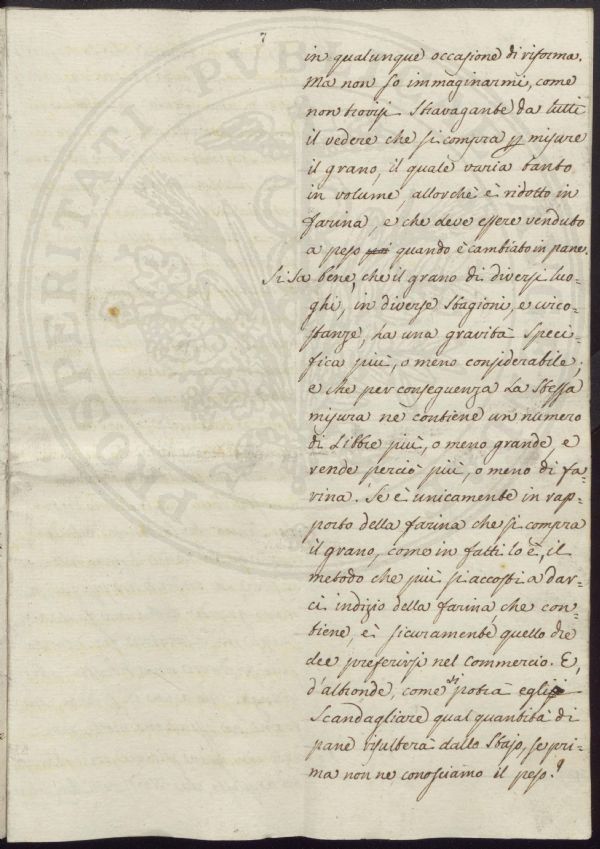 7
in qualunque occasione di riforma.
Ma non so immaginarmi, come
non trovisi stravagante da tutti
il vedere che si compra p misure
il grano, il quale varia tanto
in volume, allorchè è ridotto in
farina, e che deve essere venduto
a peso quando è cambiato in pane.
Si sa bene, che il grano di diversi luo-
ghi, in diverse stagioni, e circo-
stanze, ha una gravità speci-
fica più, o meno considerabile;
e che per conseguenza la stessa
misura ne contiene un numero
di Libbre più, o meno grande, e
rende perciò più, o meno di fa-
rina. Se è unicamente in rap-
porto della farina che si compra
il grano, come in fatti lo è, il
metodo che più si accosti a dar-
ci indizio della farina, che con-
tiene, è sicuramente quello che
dee preferirsi nel commercio. E,
d'altronde, come si potrà egli
scandagliare qual quantità di
pane risulterà dallo Stajo, se pri-
ma non ne conosciamo il peso?
PROSPERITATI PUBL